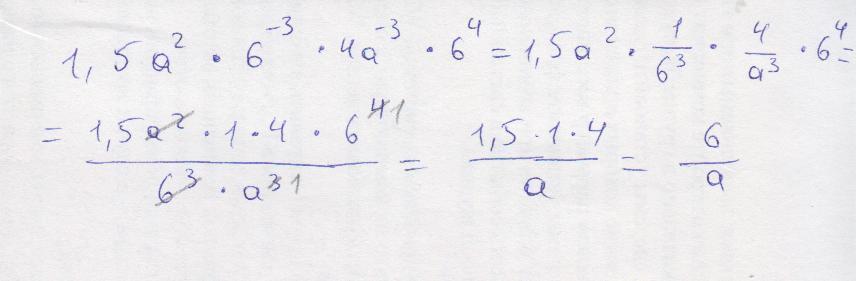 1,5a² · 6⁻³ · 4a⁻³ · 6⁴ = 1,5a² · 1/6³ · 4/a³ · 6⁴ =
= (1,5a² · 1 · 4 · 6⁴ ¹)/(6³ · a³ ¹) = (1,5 · 1 · 4)/a = 6/a